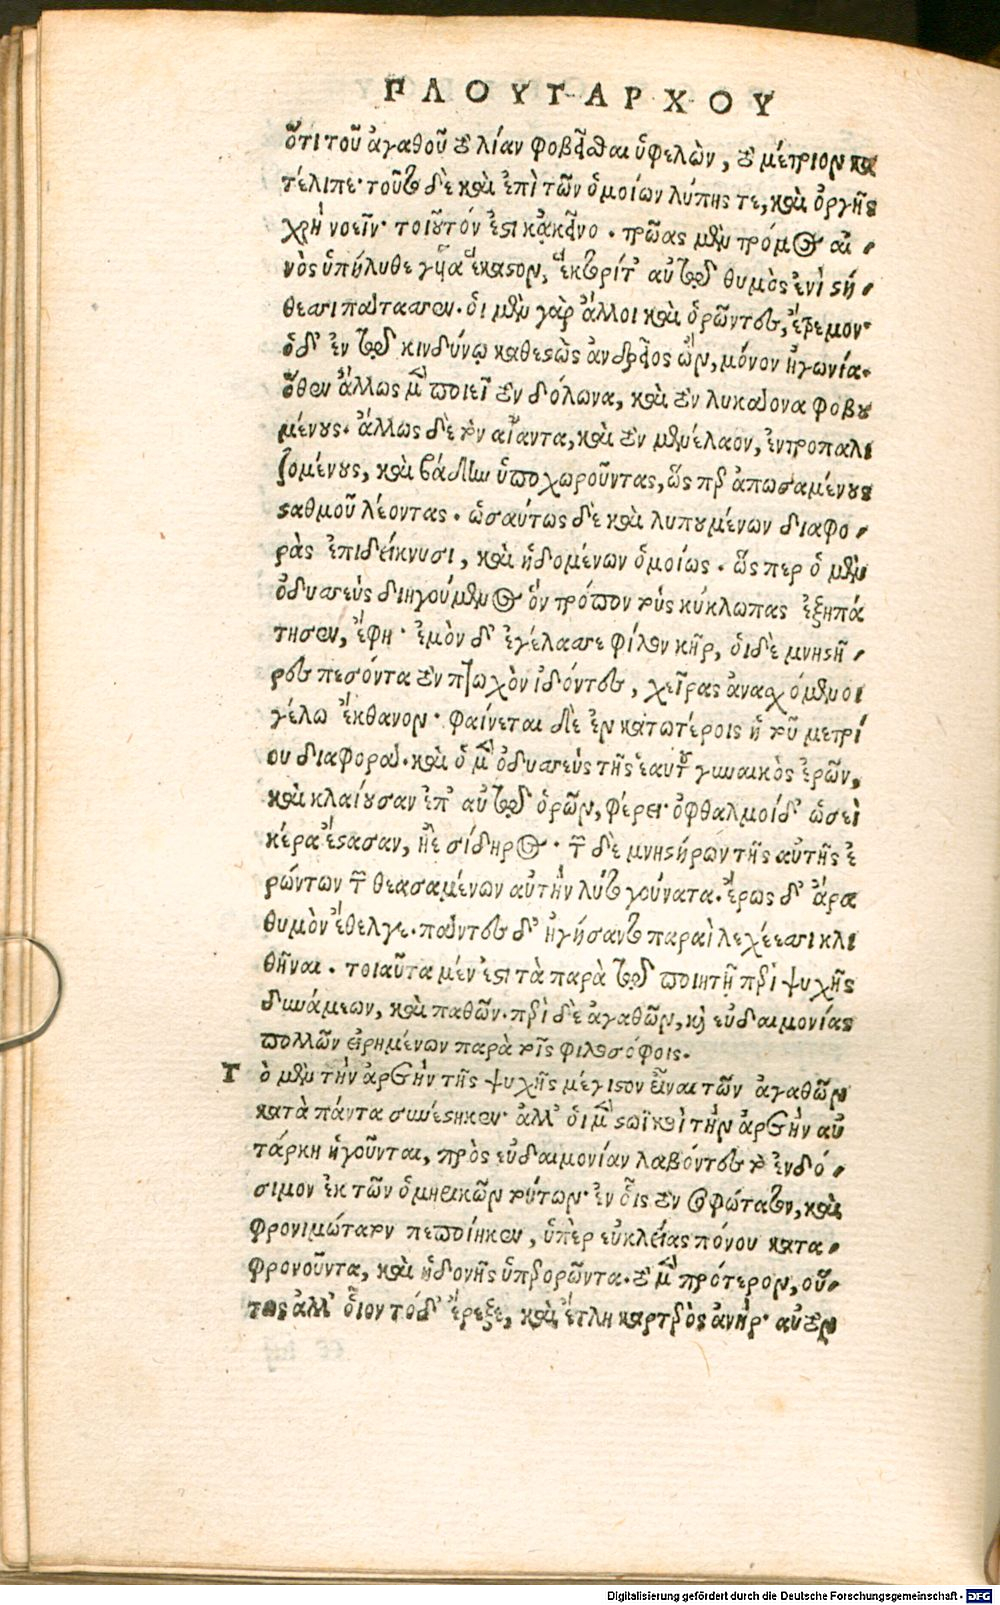 ΠΛΟΥΤΑΡΧΟΥ
ὅτι τοῦ ἀγαθοῦ τὸ λίαν φοβεῖσθαι ὑφελὼν, τὸ μέτριον κα
τέλιπε· τοῦτο δὲ καὶ ἐπὶ τῶν ὁμοίων λύπης τε, καὶ ὀργῆς
χρὴ νοεῖν· τοιοῦτόν ἐστι κἀκεῖνο. τρῶας μὲν τρόμος αἰ-
νὸς ὑπήλυθε γυῖα ἕκαστον, ἕκτορί τ' αὐτῷ θυμὸς ἐνὶ στή-
θεσσι πάτασσεν. οἱ μὲν γὰρ ἄλλοι καὶ ὁρῶντες, ἔτρεμον·
ὁ δ' ἐν τῷ κινδύνῳ καθεστὼς ἀνδρεῖος ὢν, μόνον ἠγωνία.
ὅθεν ἄλλως μὲν ποιεῖ τὸν δόλωνα, καὶ τὸν λυκάονα φοβου
μένους. ἄλλως δὲ τὸν αἴαντα, καὶ τὸν μενέλαον, ἐντροπαλι
ζομένους, καὶ βάδην ὑποχωροῦντας, ὥσπερ ἀπωσαμένους
σταθμοῦ λέοντας. ὡσαύτως δὲ καὶ λυπουμένων διαφο-
ρὰς ἐπιδείκνυσι, καὶ ἡδομένων ὁμοίως. ὥς περ ὁ μὲν
ὀδυσσεὺς διηγούμενος ὃν τρόπον τοὺς κύκλωπας ἐξηπά
τησεν, ἔφη· ἐμὸν δ' ἐγέλασσε φίλον κῆρ, οἱ δὲ μνηστῆ-
ρες πεσόντα τὸν πτωχὸν ἰδόντες, χεῖρας ἀνασχόμενοι
γέλω ἔκθανον· φαίνεται δὲ ἐν κατωτέροις ἡ τοῦ μετρί
ου διαφορά. καὶ ὁ μὲν ὀδυσσεὺς τῆς ἑαυτοῦ γυναικὸς ἐρῶν,
καὶ κλαίουσαν ἐπ' αὐτῷ ὁρῶν, φέρει· ὀφθαλμοὶ δ' ὡσεὶ
κέρα ἕστασαν, ἠὲ σίδηρος. τῶν δὲ μνηστήρων τῆς αὐτῆς ἐ
ρώντων τῶν θεασαμένων αὐτὴν λύτο γούνατα. ἔρως δ' ἄρα
θυμὸν ἔθελγε. πάντες δ' ἠγήσαντο παραὶ λεχέεσσι κλι
θῆναι. τοιαῦτα μέν ἐστι τὰ παρὰ τῷ ποιητῇ περὶ ψυχῆς
δυνάμεων, καὶ παθῶν. περὶ δὲ ἀγαθῶν, καὶ εὐδαιμονίας
πολλῶν εἰρημένων παρὰ τοῖς φιλοσόφοις.
Τὸ μὲν τὴν ἀρετὴν τῆς ψυχῆς μέγιστον εἶναι τῶν ἀγαθῶν
κατὰ πάντα συνέστηκεν· ἀλλ' οἱ μὲν στωϊκοὶ τὴν ἀρετὴν αὐ
τάρκη ἡγοῦνται, πρὸς εὐδαιμονίαν λαβόντες τὸ ἐνδό-
σιμον ἐκ τῶν ὁμηρικῶν τούτων· ἐν οἷς τὸν σοφώτατον, καὶ
φρονιμώτατον πεποίηκεν, ὑπὲρ εὐκλείας πόνου κατα-
φρονοῦντα, καὶ ἡδονῆς ὑπερορῶντα. τὸ μὲν πρότερον, οὕ-
τως ἀλλ' οἷον τόδ' ἔρεξε, καὶ ἔτλη καρτερὸς ἀνήρ· αὐτὸν
Digitalisierung gefördert durch die Deutsche Forschungsgemeinschaft - DFG